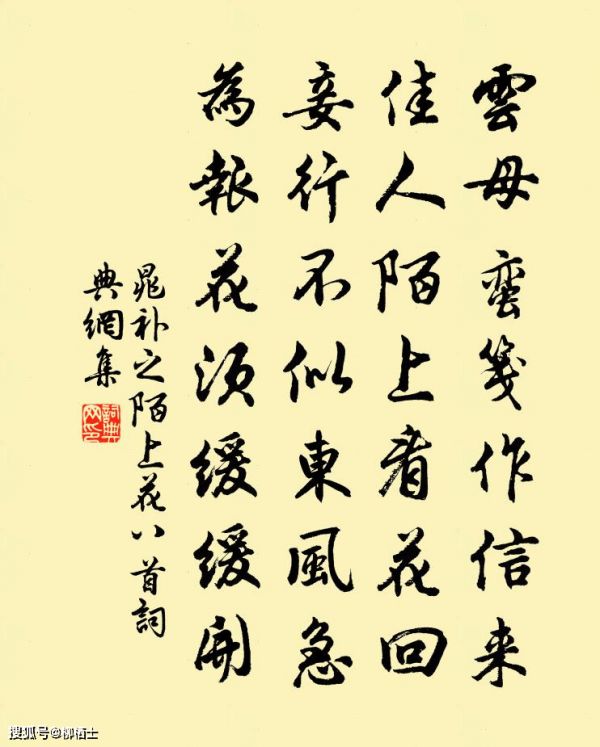 雲母蛮箋作信来
佳人陌上看花回
妾行不似東風急
為報花须緩緩開
晁补之陌上花八首詞
典網集
詞典网印
搜狐号@柳栖士